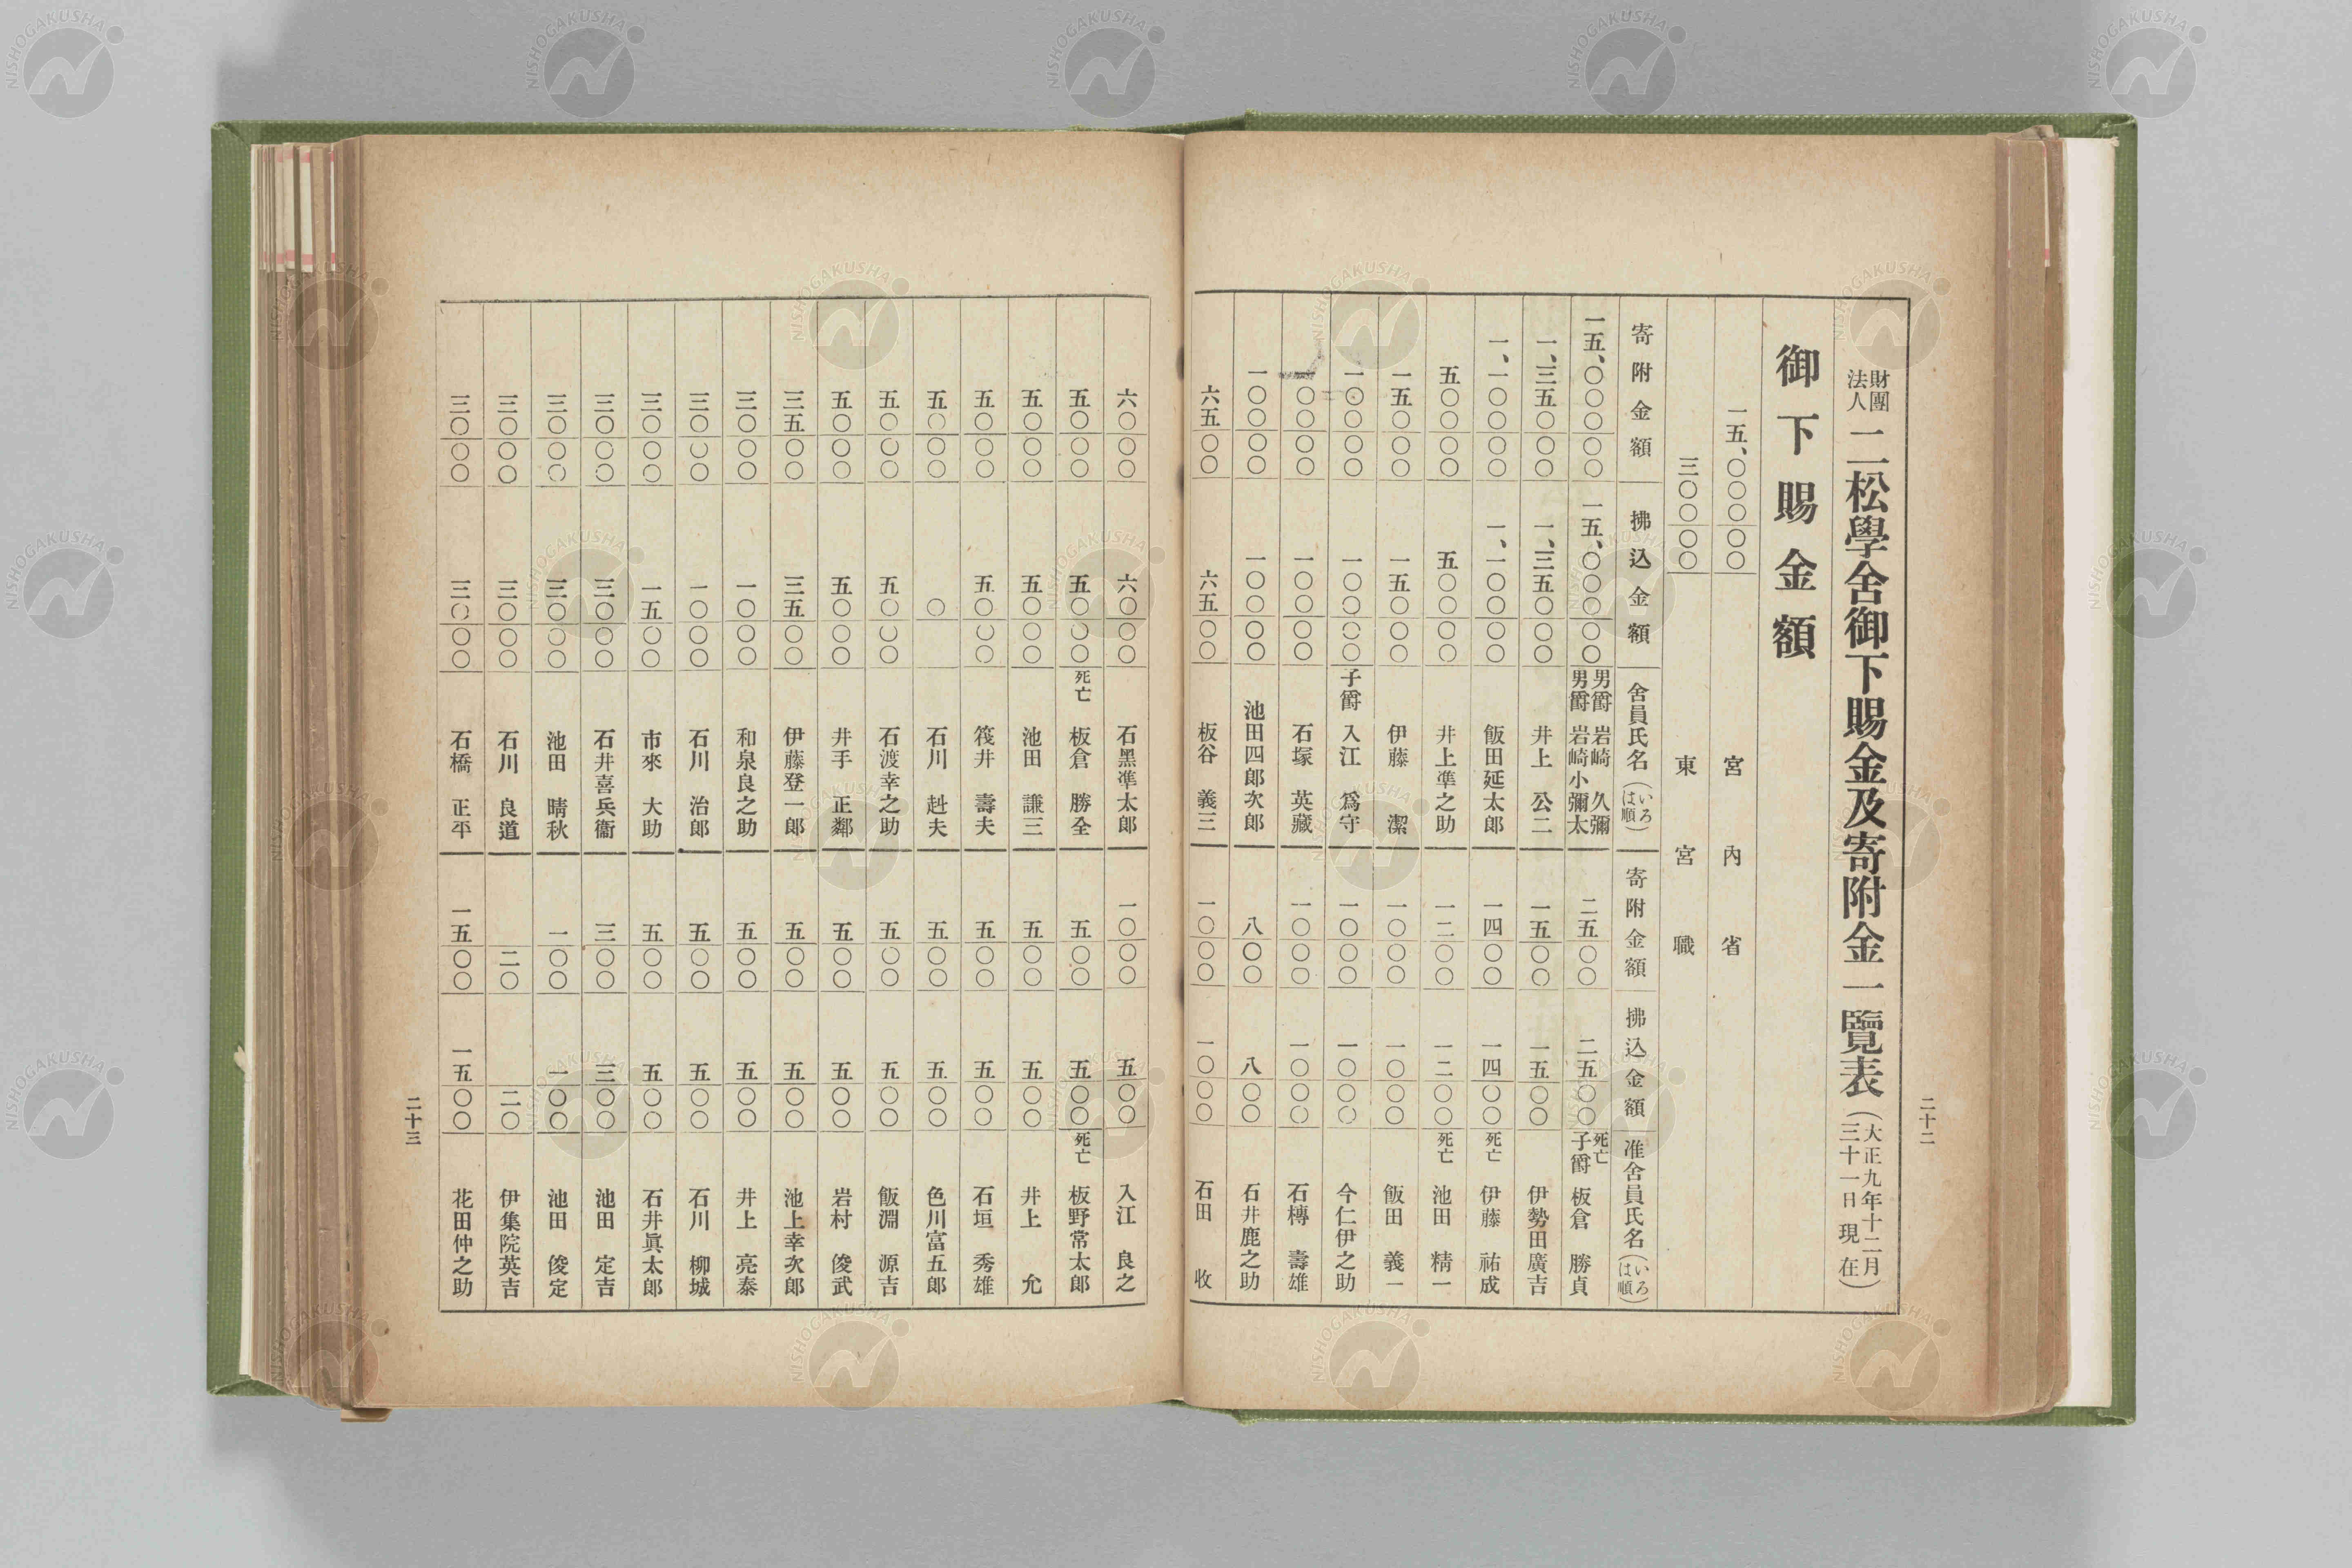 二十二
財團法人 二松學舍御下賜金及寄附金一覽表（大正九年十二月三十一日現在）
御下賜金額
一五、〇〇〇〇〇 宮內省
三〇〇〇〇 東宮職
寄附金額 拂込金額 舍員氏名（いろは順） 寄附金額 拂込金額 准舍員氏名（いろは順）
一五、〇〇〇〇〇 一五、〇〇〇〇〇 男爵 岩崎久彌 男爵 岩崎小彌太 二五〇〇 二五〇〇 死亡 子爵 板倉勝貞
一、三五〇〇〇 一、三五〇〇〇 井上公二 一五〇〇 一五〇〇 伊勢田廣吉
一、一〇〇〇〇 一、一〇〇〇〇 飯田延太郎 一四〇〇 一四〇〇 死亡 伊藤祐成
五〇〇〇〇 五〇〇〇〇 井上準之助 一二〇〇 一二〇〇 死亡 池田精一
一五〇〇〇 一五〇〇〇 伊藤潔 一〇〇〇 一〇〇〇 飯田義一
一〇〇〇〇 一〇〇〇〇 子爵 入江爲守 一〇〇〇 一〇〇〇 今仁伊之助
一〇〇〇〇 一〇〇〇〇 石塚英藏 一〇〇〇 一〇〇〇 石榑壽雄
一〇〇〇〇 一〇〇〇〇 池田四郎次郎 八〇〇 八〇〇 石井鹿之助
六五〇〇 六五〇〇 板谷義三 一〇〇〇 一〇〇〇 石田收
六〇〇〇 六〇〇〇 石黑準太郎 一〇〇〇 五〇〇 入江良之
五〇〇〇 五〇〇〇 死亡 板倉勝全 五〇〇 五〇〇 死亡 板野常太郎
五〇〇〇 五〇〇〇 池田謙三 五〇〇 五〇〇 井上允
五〇〇〇 五〇〇〇 筏井壽夫 五〇〇 五〇〇 石垣秀雄
五〇〇〇 〇 石川赳夫 五〇〇 五〇〇 色川富五郎
五〇〇〇 五〇〇〇 石渡幸之助 五〇〇 五〇〇 飯淵源吉
五〇〇〇 五〇〇〇 井手正鄰 五〇〇 五〇〇 岩村俊武
三五〇〇 三五〇〇 伊藤登一郎 五〇〇 五〇〇 池上幸次郎
三〇〇〇 一〇〇〇 和泉良之助 五〇〇 五〇〇 井上亮泰
三〇〇〇 一〇〇〇 石川治郎 五〇〇 五〇〇 石川柳城
三〇〇〇 一五〇〇 市來大助 五〇〇 五〇〇 石井眞太郎
三〇〇〇 三〇〇〇 石井喜兵衞 三〇〇 三〇〇 池田定吉
三〇〇〇 三〇〇〇 池田晴秋 一〇〇 一〇〇 池田俊定
三〇〇〇 三〇〇〇 石川良道 二〇 二〇 伊集院英吉
三〇〇〇 三〇〇〇 石橋正平 一五〇〇 一五〇〇 花田仲之助
二十三